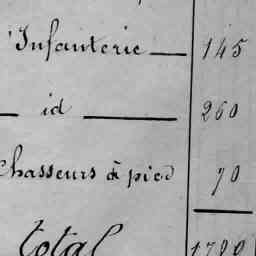 Infanterie — 145
— id — 260
Chasseurs à pied 70
total 1780